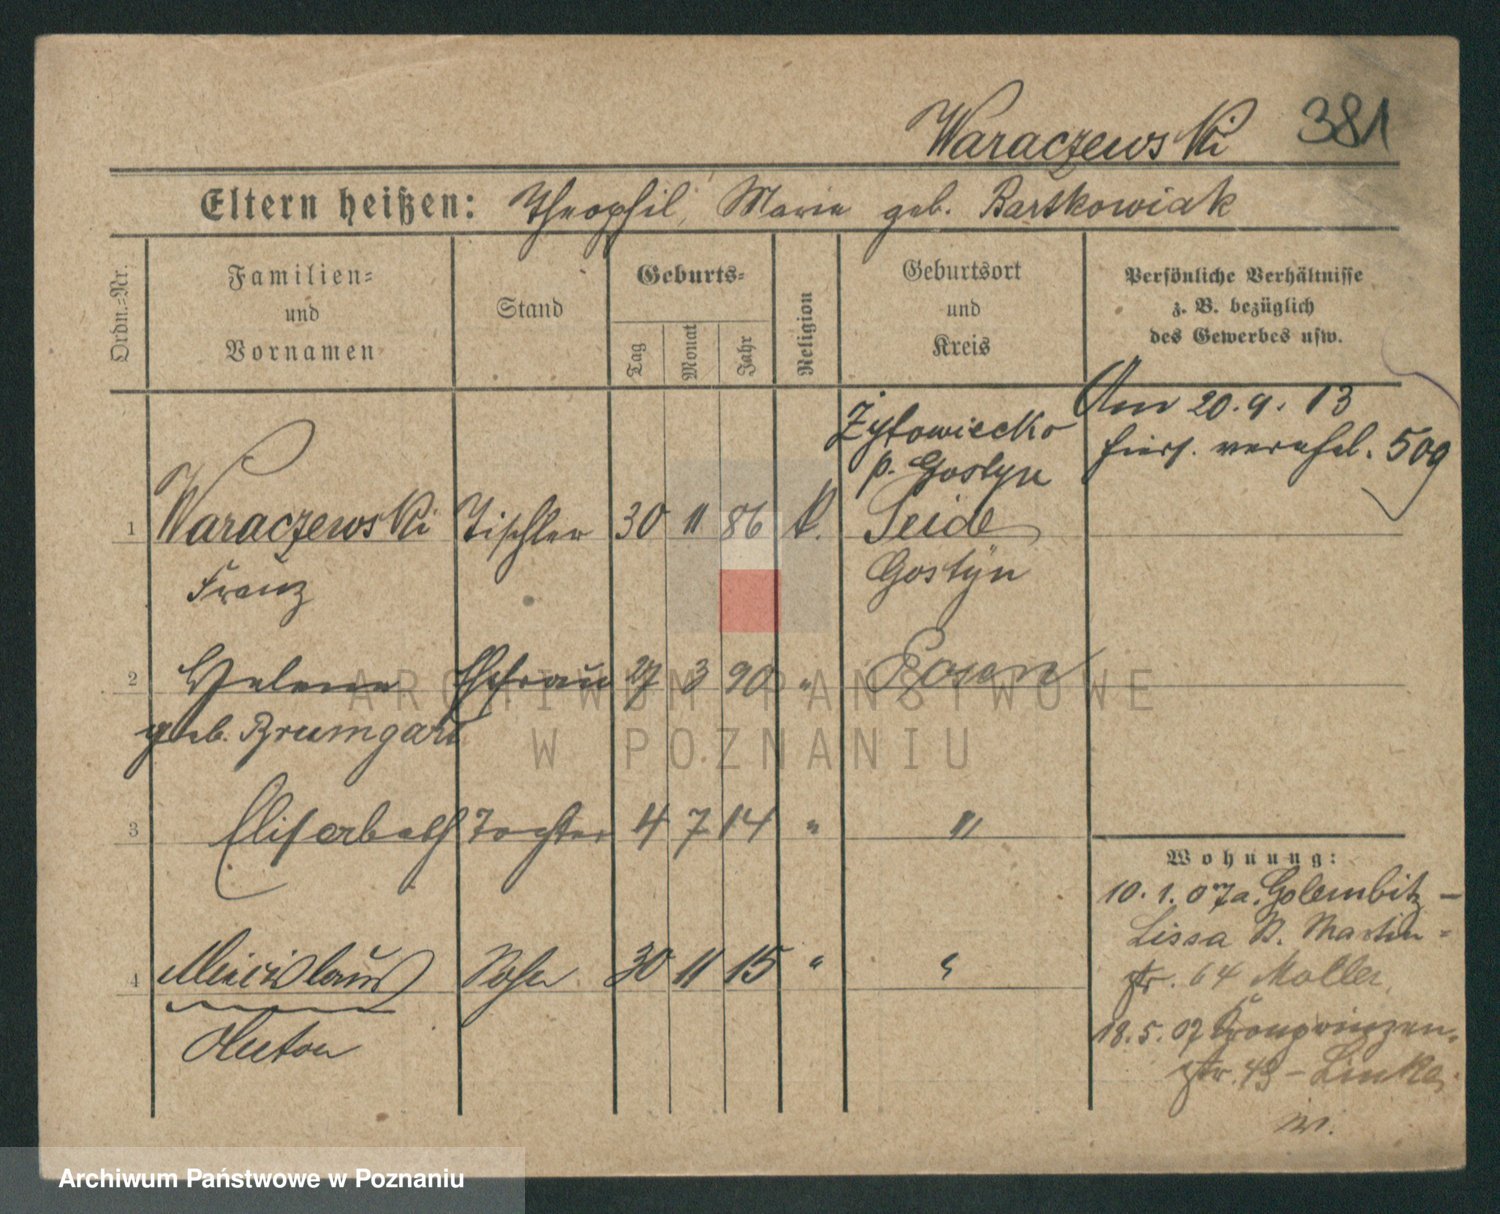 Waraczewski 381
Eltern heißen: Theophil, Marie geb. Bartkowiak
Ordn.=Nr.
Familien=
und
Vornamen
Stand
Geburts=
Tag
Monat
Jahr
Religion
Geburtsort
und
Kreis
Persönliche Verhältnisse
z. B. bezüglich
des Gewerbes usw.
Am 20.9.13
hiers. verehel. 509
Żytowiecko
p. Gostyn
1 Waraczewski Tischler 30 11 86 k. Seide
Franz Gostyn
2 Helene Ehefrau 27 3 90 " Posen
geb. Brumgart
3 Elisabeth Tochter 4 7 14 " "
4 Miecislaus Sohn 30 11 15 " "
Anton
Wohnung:
10.1.07 a. Golembitz -
Lissa St. Martin=
str. 64 Moller,
18.5.07 Kronprinzen=
str. 43 - Linke,
w.
ARCHIWUM PAŃSTWOWE
W POZNANIU
Archiwum Państwowe w Poznaniu